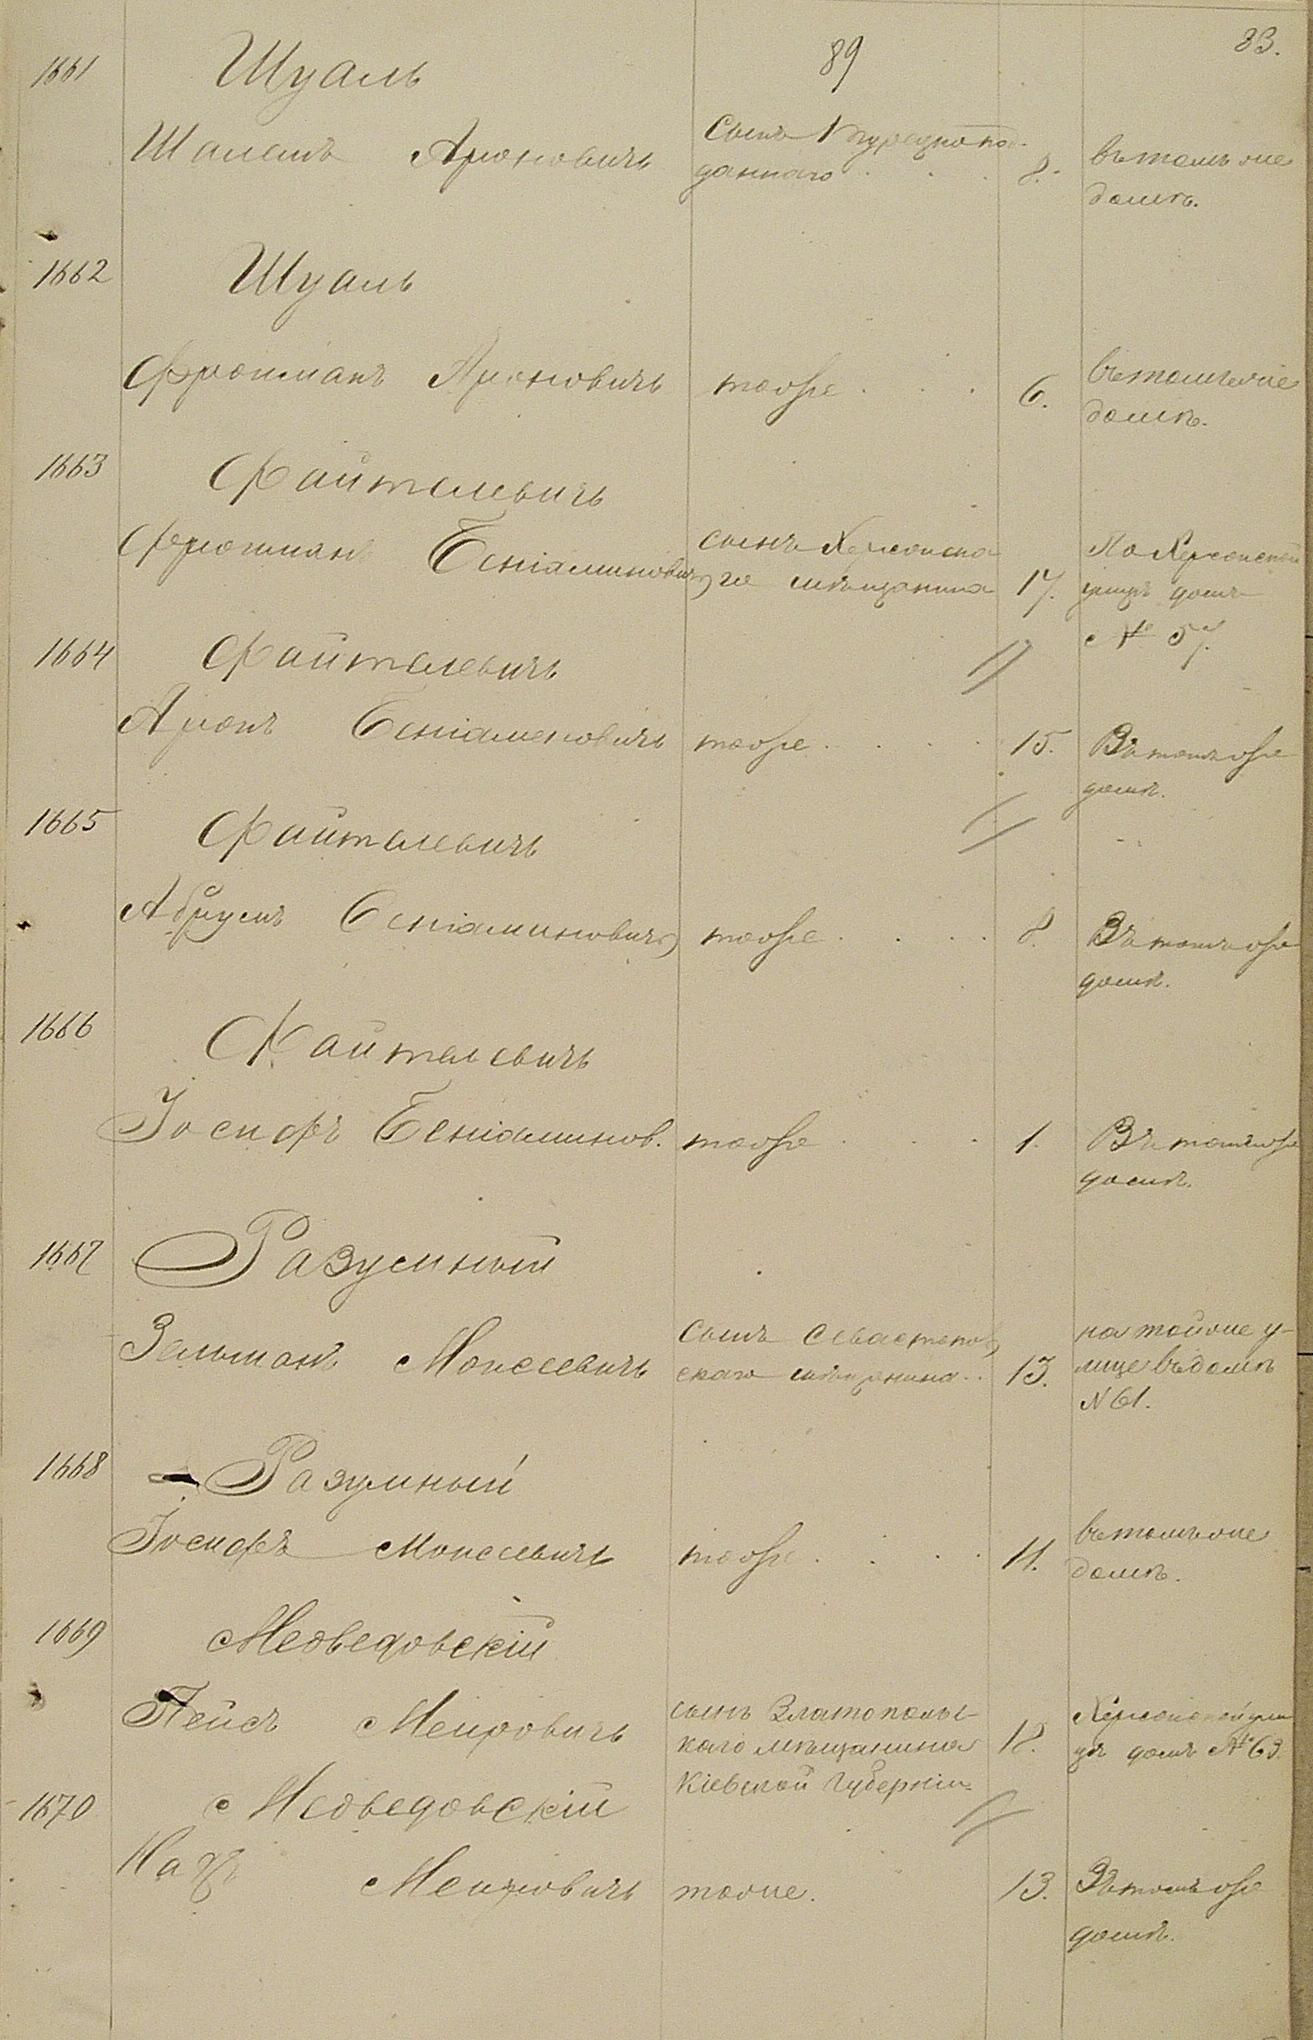 89
83.
1661 Шуаль
Шалемъ Ароновичъ
сынъ Турецкопод-
даннаго . . . 8.
въ томъ же
домѣ.
1662 Шуаль
Фроиманъ Ароновичъ тоже . . . 6.
въ томъ же
домѣ.
1663 Файталевичъ
Фроиман Беніаминовичъ
сынъ Херсонска
го мѣщанина 17.
По Херсонской
улицѣ домъ
№ 57.
1664 Файталевичъ
Аронъ Беніаменовичъ тоже . . . . 15.
Въ томъ же
домѣ.
1665 Файталевичъ
Абрумъ Беніаминовичъ тоже . . . . 8.
Въ томъ же
домѣ.
1666 Файталевичъ
Іосифъ Беніаминов. тоже . . . 1.
Въ томъ же
домѣ.
1667 Разумный
Зельманъ Моисеевичъ
сынъ Севастопол
скаго мѣщанина . . 13.
на той же у-
лице въ домѣ
N 61.
1668 Разумный
Іосифъ Моисеевичъ тоже . . . . 11.
въ томъ же
домѣ.
1669 Медведовскій
Пейсъ Меировичъ
сынъ Златопольс-
каго мѣщанина 18.
Кіевской Губерніи
Херсонской ули
цѣ домъ № 63.
1670 Медведовскій
Меировичъ тоже. 13.
Въ томъ же
домѣ.